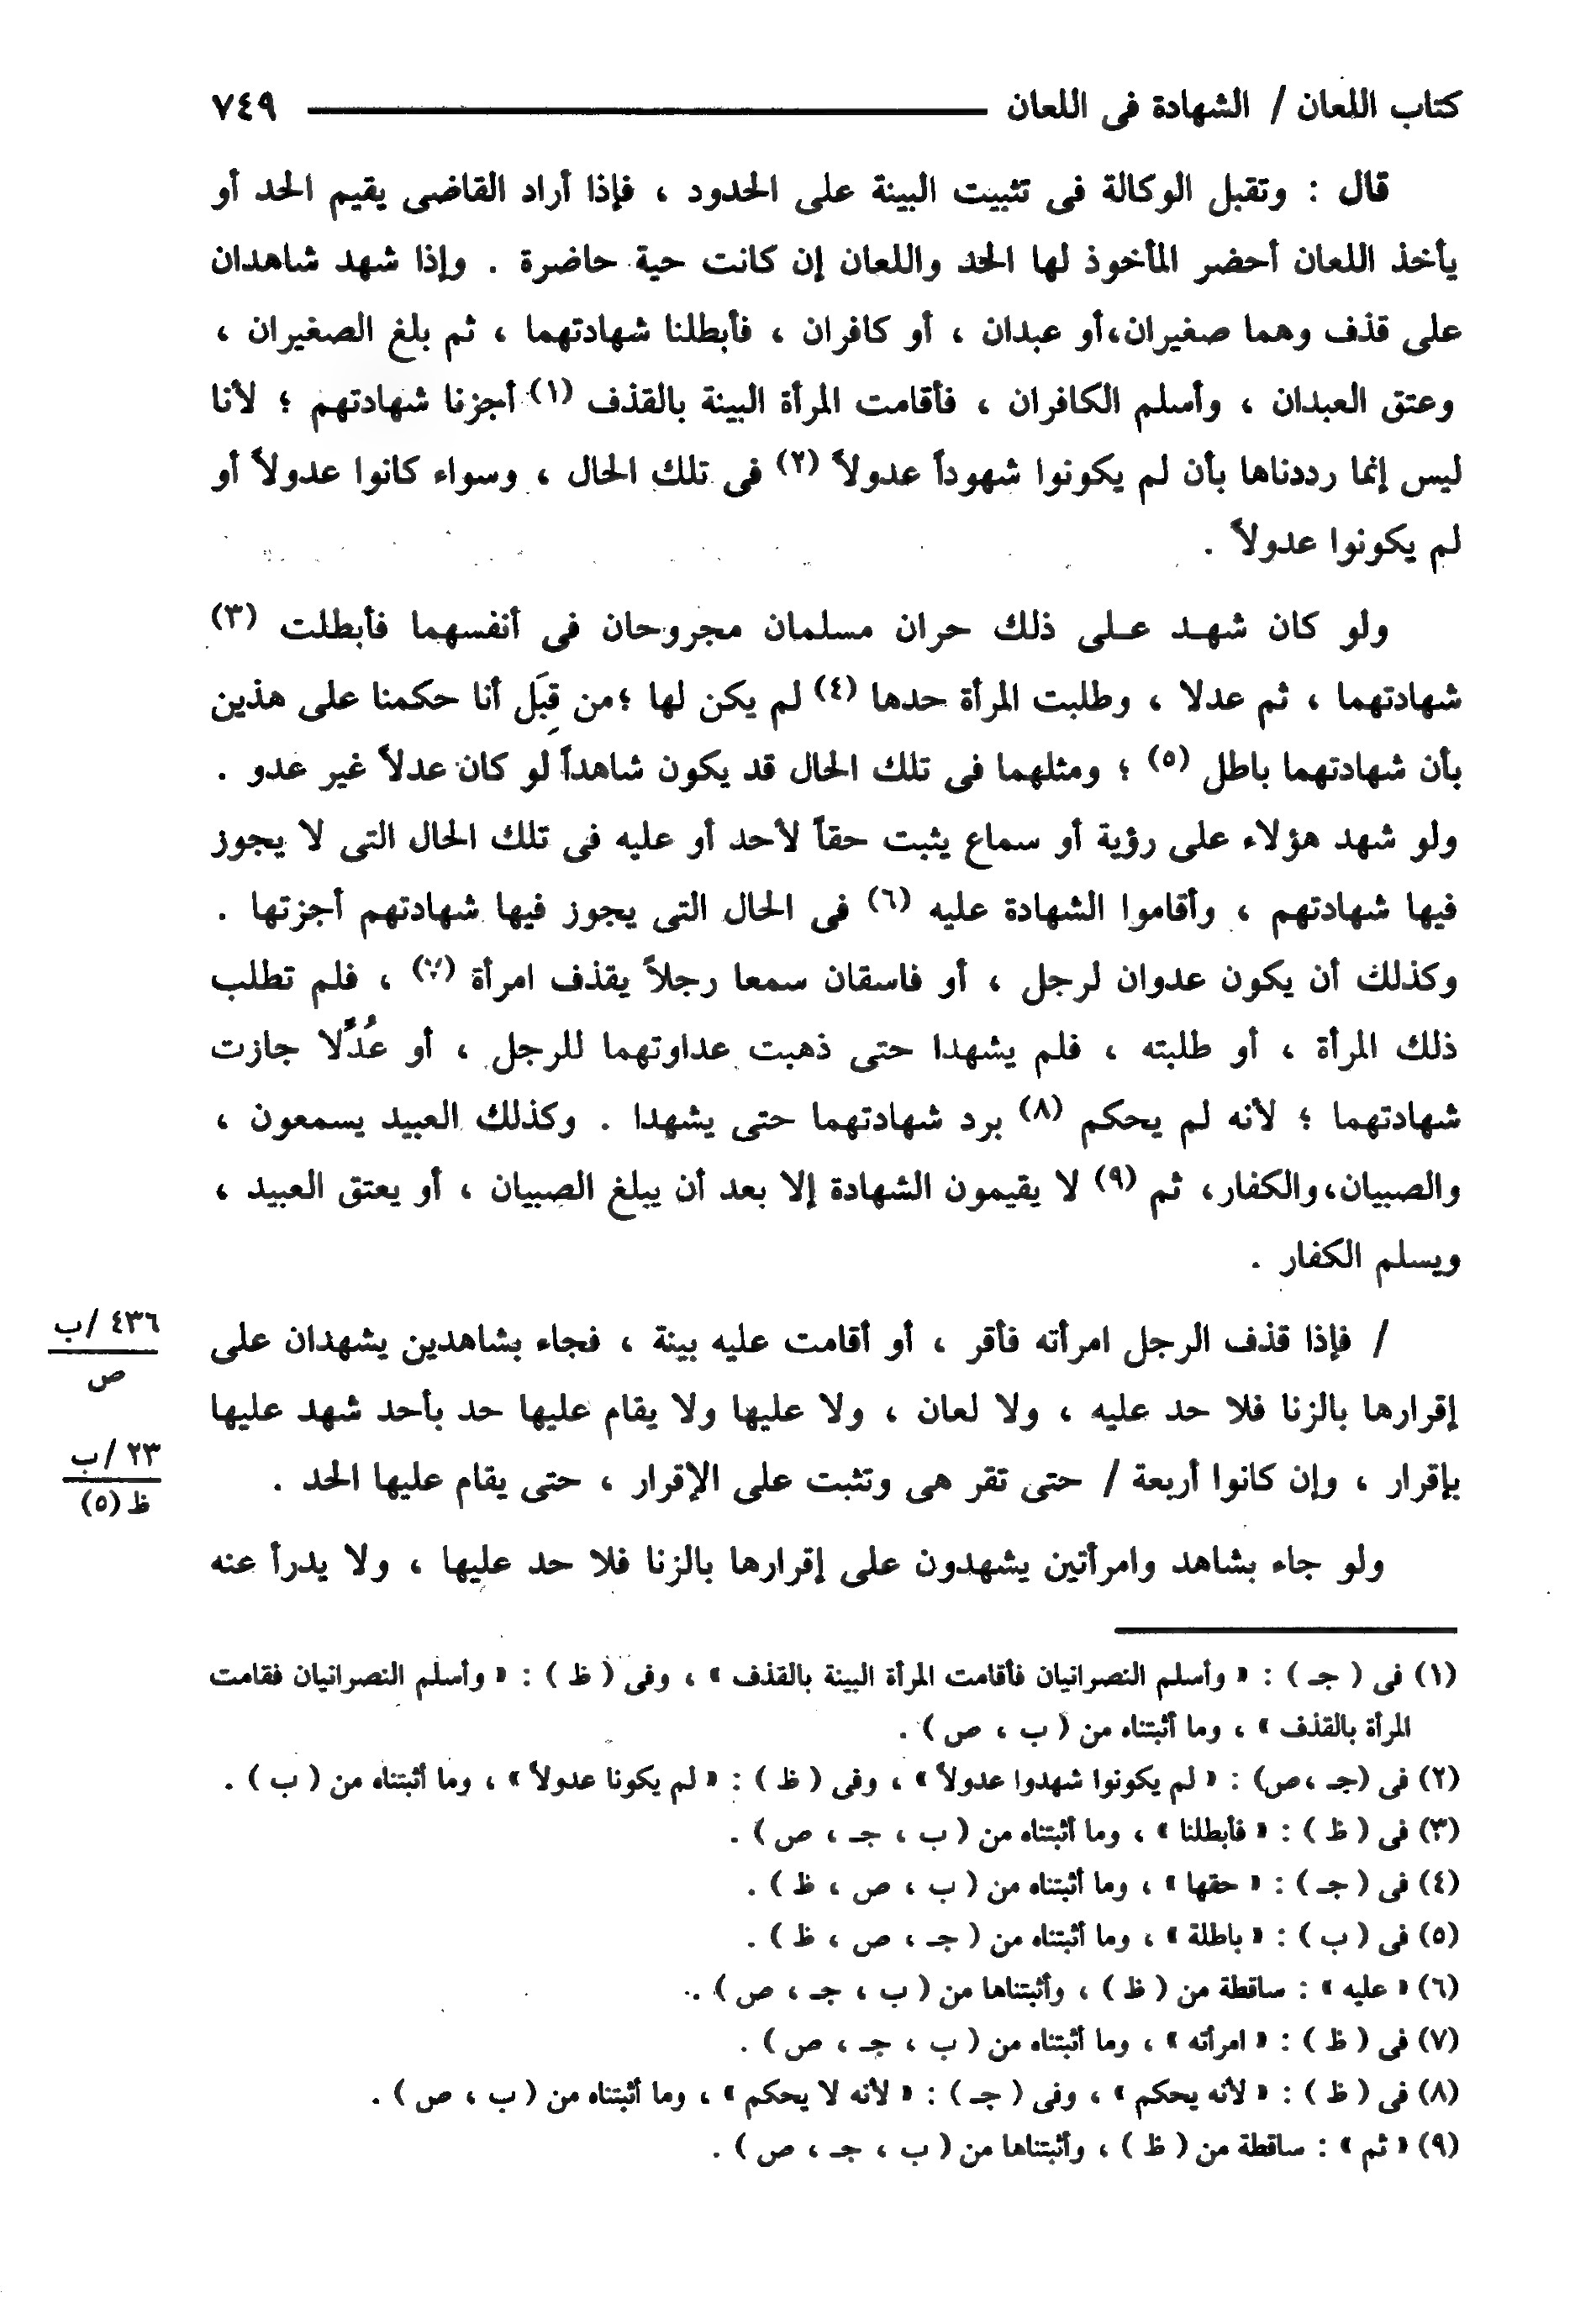 كتاب اللعان / الشهادة فى اللعان ٧٤٩
قال : وتقبل الوكالة فى تثبيت البينة على الحدود ، فإذا أراد القاضى يقيم الحد أو
يأخذ اللعان أحضر المأخوذ لها الحد واللعان إن كانت حية حاضرة . وإذا شهد شاهدان
على قذف وهما صغيران،أو عبدان ، أو كافران ، فأبطلنا شهادتهما ، ثم بلغ الصغيران ،
وعتق العبدان ، وأسلم الكافران ، فأقامت المرأة البينة بالقذف (١) أجزنا شهادتهم ؛ لأنا
ليس إنما رددناها بأن لم يكونوا شهوداً عدولاً (٢) فى تلك الحال ، وسواء كانوا عدولاً أو
لم يكونوا عدولاً .
ولو كان شهد على ذلك حران مسلمان مجروحان فى أنفسهما فأبطلت (٣)
شهادتهما ، ثم عدلا ، وطلبت المرأة حدها (٤) لم يكن لها ؛من قِبَل أنا حكمنا على هذين
بأن شهادتهما باطل (٥) ؛ ومثلهما فى تلك الحال قد يكون شاهداً لو كان عدلاً غير عدو .
ولو شهد هؤلاء على رؤية أو سماع يثبت حقاً لأحد أو عليه فى تلك الحال التى لا يجوز
فيها شهادتهم ، وأقاموا الشهادة عليه (٦) فى الحال التى يجوز فيها شهادتهم أجزتها .
وكذلك أن يكون عدوان لرجل ، أو فاسقان سمعا رجلاً يقذف امرأة (٧) ، فلم تطلب
ذلك المرأة ، أو طلبته ، فلم يشهدا حتى ذهبت عداوتهما للرجل ، أو عُدِّلا جازت
شهادتهما ؛ لأنه لم يحكم (٨) برد شهادتهما حتى يشهدا . وكذلك العبيد يسمعون ،
والصبيان،والكفار، ثم (٩) لا يقيمون الشهادة إلا بعد أن يبلغ الصبيان ، أو يعتق العبيد ،
ويسلم الكفار .
/ فإذا قذف الرجل امرأته فأقر ، أو أقامت عليه بينة ، فجاء بشاهدين يشهدان على
٤٣٦ /ب
ص
إقرارها بالزنا فلا حد عليه ، ولا لعان ، ولا عليها ولا يقام عليها حد بأحد شهد عليها
بإقرار ، وإن كانوا أربعة / حتى تقر هى وتثبت على الإقرار ، حتى يقام عليها الحد .
٢٣ /ب
ظ (٥)
ولو جاء بشاهد وامرأتين يشهدون على إقرارها بالزنا فلا حد عليها ، ولا يدرأ عنه
(١) فى ( جـ ) : « وأسلم النصرانيان فأقامت المرأة البينة بالقذف » ، وفى ( ظ ) : « وأسلم النصرانيان فقامت
المرأة بالقذف » ، وما أثبتناه من ( ب ، ص ) .
(٢) فى (جـ ،ص) : « لم يكونوا شهدوا عدولاً » ، وفى ( ظ ) : « لم يكونا عدولاً » ، وما أثبتناه من ( ب ) .
(٣) فى ( ظ ) : « فأبطلنا » ، وما أثبتناه من ( ب ، جـ ، ص ) .
(٤) فى ( جـ ) : « حقها » ، وما أثبتناه من ( ب ، ص ، ظ ) .
(٥) فى ( ب ) : « باطلة » ، وما أثبتناه من ( جـ ، ص ، ظ ) .
(٦) « عليه » : ساقطة من ( ظ ) ، وأثبتناها من ( ب ، جـ ، ص ) .
(٧) فى ( ظ ) : « امرأته » ، وما أثبتناه من ( ب ، جـ ، ص ) .
(٨) فى ( ظ ) : « لأنه يحكم » ، وفى ( جـ ) : « لأنه لا يحكم » ، وما أثبتناه من ( ب ، ص ) .
(٩) « ثم » : ساقطة من ( ظ ) ، وأثبتناها من ( ب ، جـ ، ص ) .